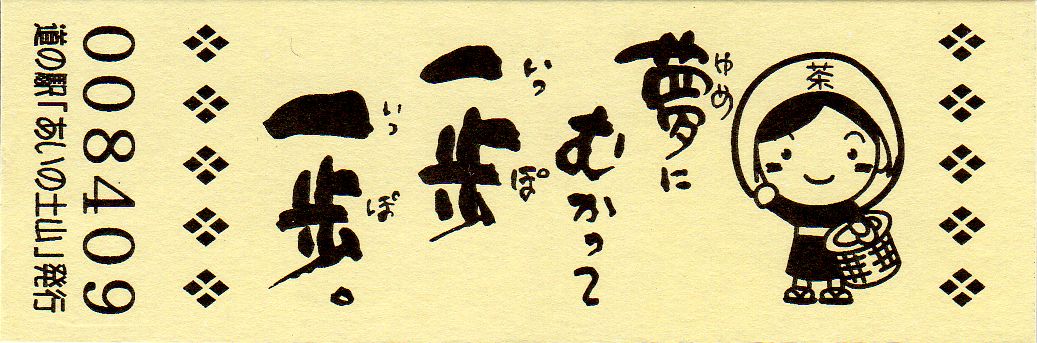 茶
ゆめ
夢に
むかって
いっぽ
一歩
いっぽ
一歩。
008409
道の駅「あいの土山」発行